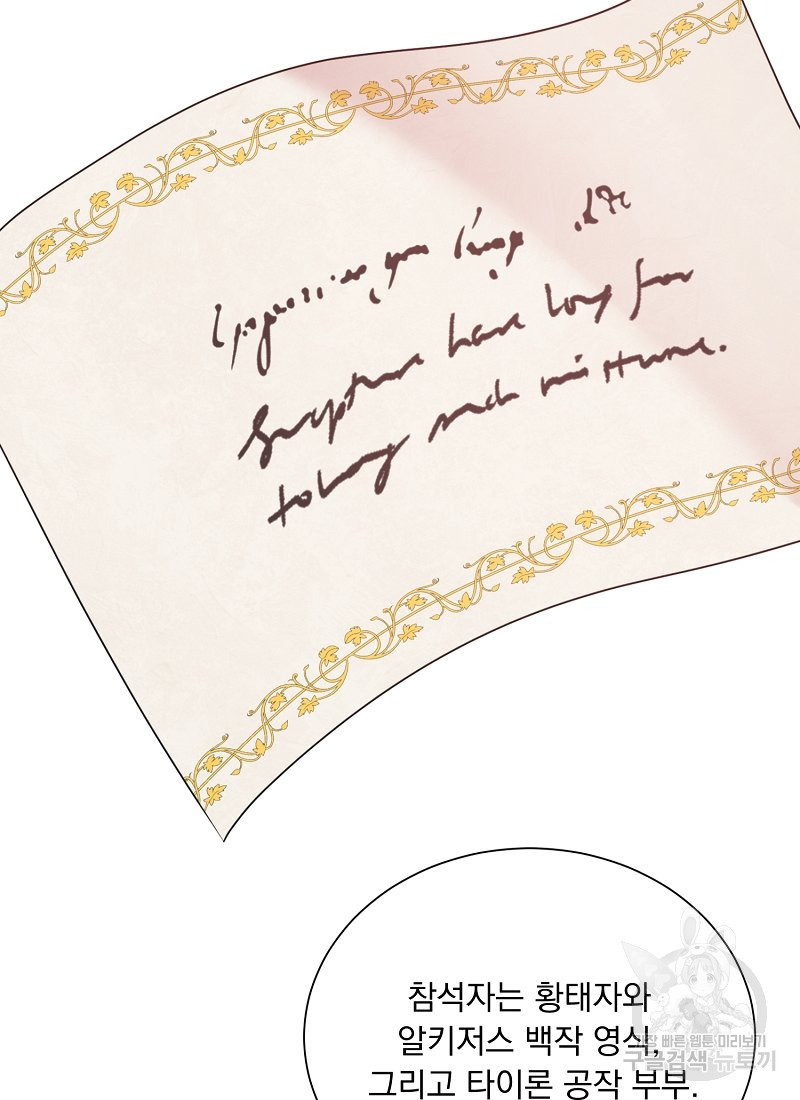 Scripture have long for
such mixture.
참석자는 황태자와
알키저스 백작 영식,
그리고 타이론 공작 부부.
가장 빠른 웹툰 미리보기
구글검색 뉴토끼